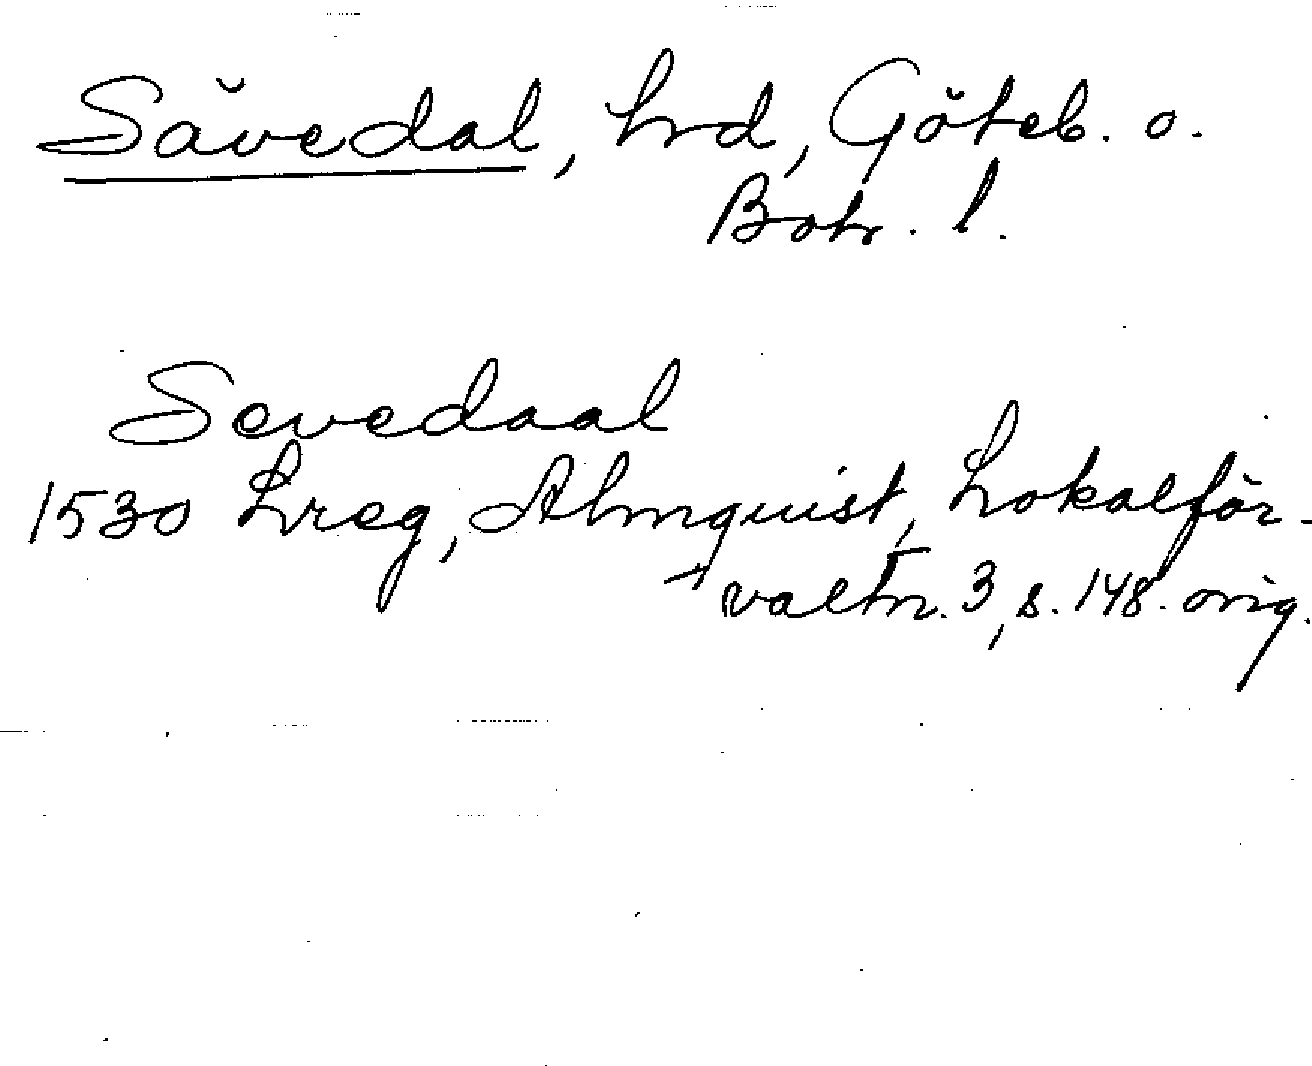 Sävedal, hrd, Göteb. o.
Boh. l.
Sevedaal
1530 Lreg, Almquist, Lokalför-
valtn. 3, s. 148. orig.